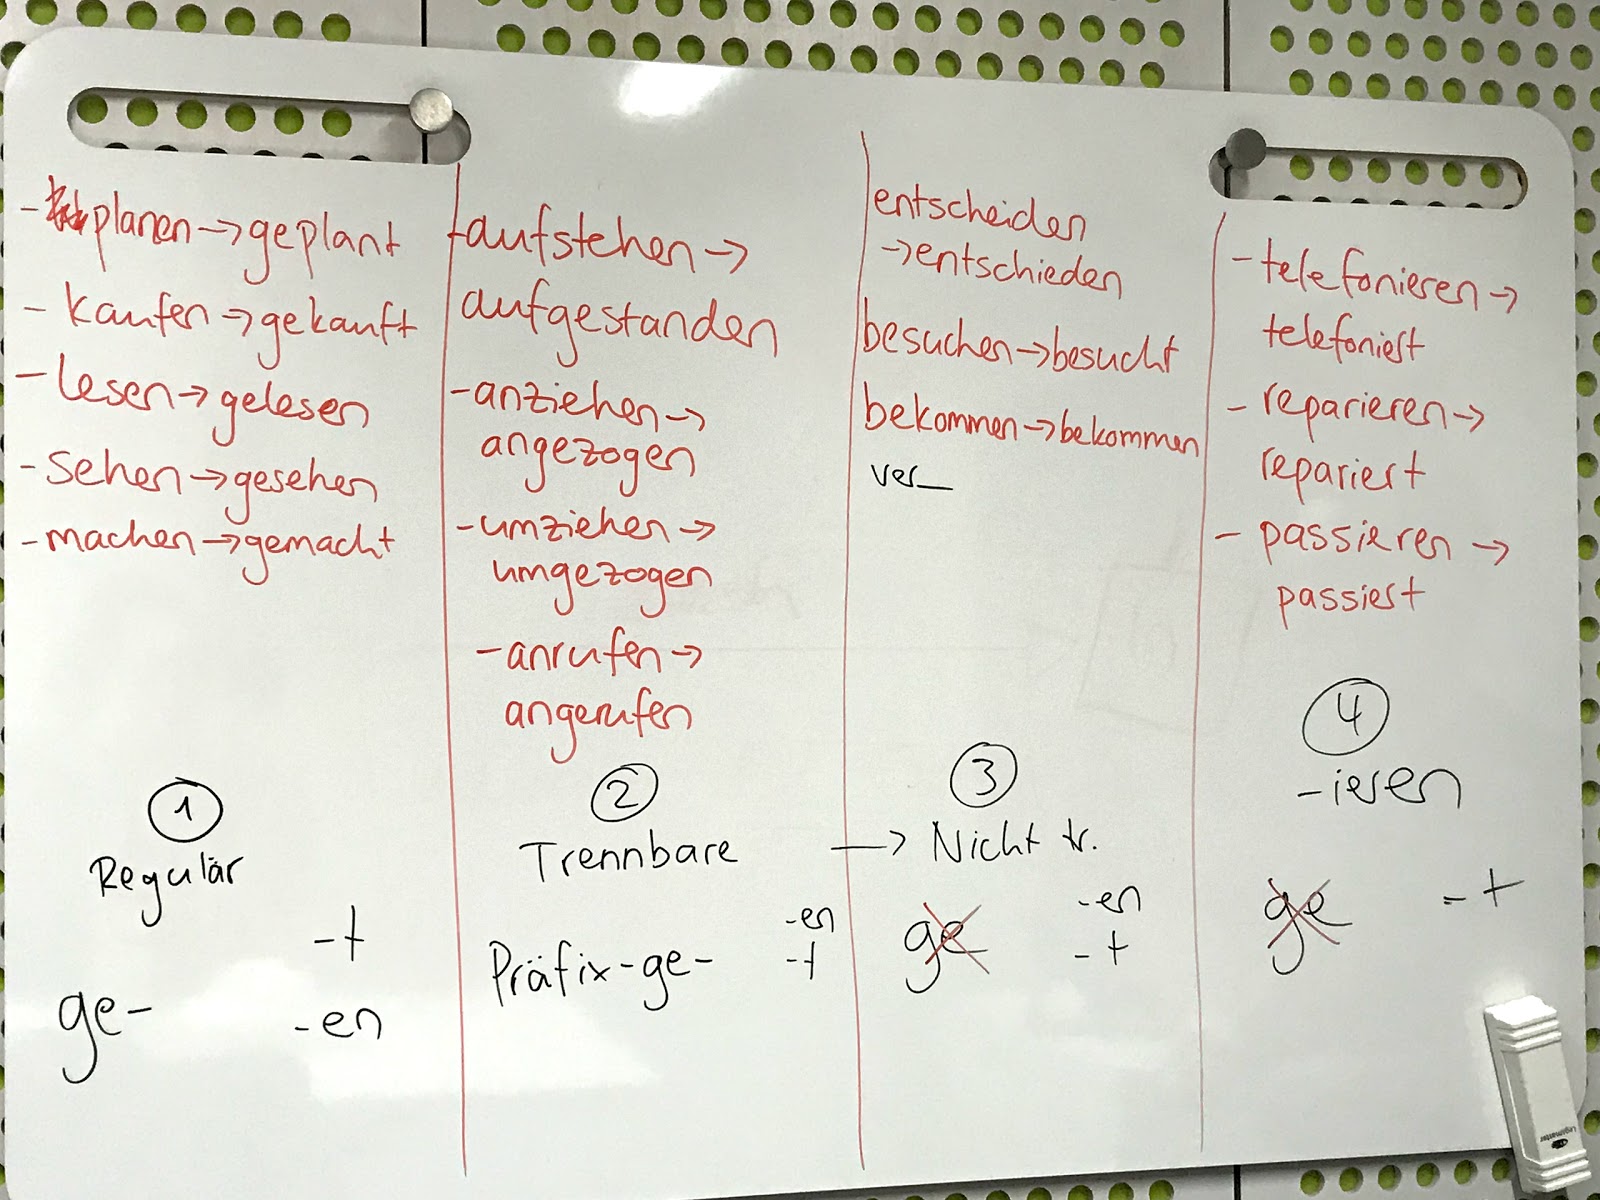 - planen → geplant
- kaufen → gekauft
- lesen → gelesen
- sehen → gesehen
- machen → gemacht
① 
Regulär
-t
ge-
-en
-aufstehen →
aufgestanden
- anziehen →
angezogen
- umziehen →
umgezogen
- anrufen →
angerufen
②
Trennbare
-en
Präfix-ge-
-t
entscheiden
→ entschieden
besuchen → besucht
bekommen → bekommen
ver_
③
→ Nicht tr.
-en
ge
-t
- telefonieren →
telefoniert
- reparieren →
repariert
- passieren →
passiert
④
-ieren
ge -t
Legamaster